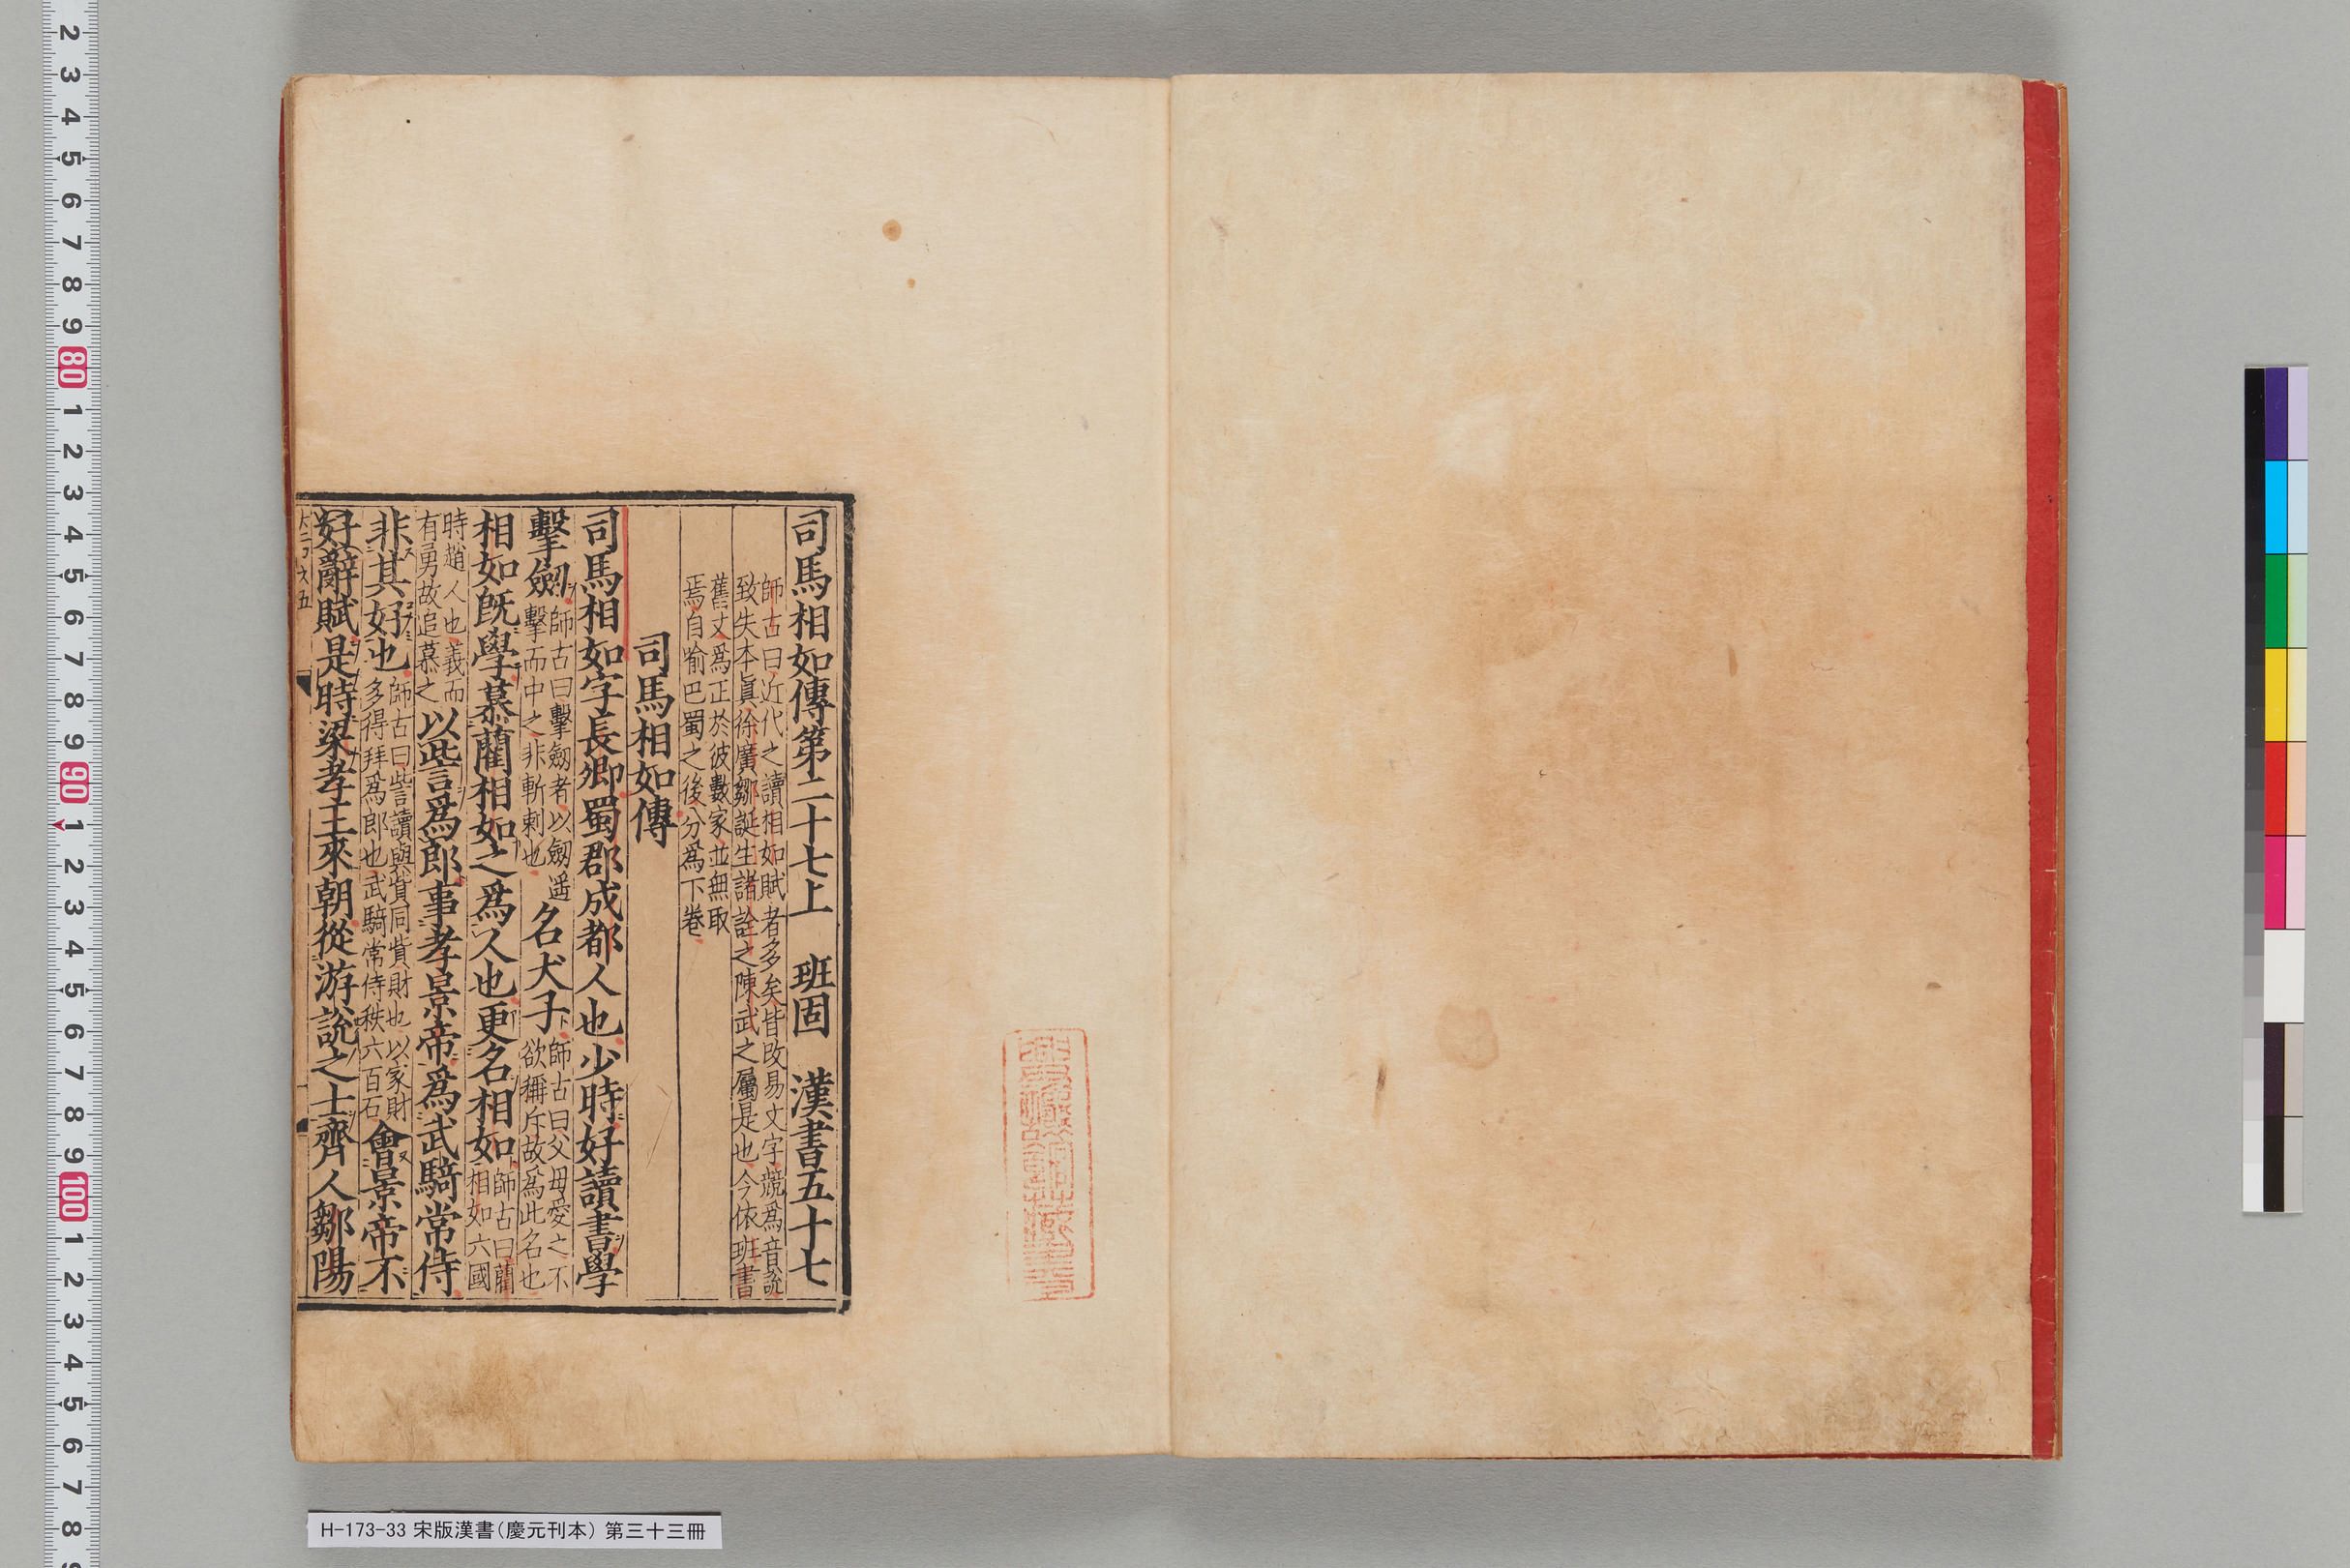 司馬相如傳第二十七上　班固　漢書五十七
師古曰近代之讀相如賦者多矣皆改易文字競爲音說
致失本眞徐廣鄒誕生諸詮之陳武之屬是也今依班書
舊文爲正於彼數家並無取
焉自喻巴蜀之後分爲下卷
司馬相如傳
司馬相如字長卿蜀郡成都人也少時好讀書學
擊劒師古曰擊劒者以劒遥擊而中之非斬刺也名犬子師古曰父母愛之不欲稱斥故爲此名也
相如旣學慕藺相如之爲人也更名相如師古曰藺相如六國
時趙人也義而有勇故追慕之以訾爲郎事孝景帝爲武騎常侍
非其好也師古曰訾讀與貲同貲財也以家財多得拜爲郎也武騎常侍秩六百石會景帝不
好辭賦是時梁孝王來朝從游說之士齊人鄒陽
H-173-33 宋版漢書(慶元刊本) 第三十三冊
2
3
4
5
6
7
8
9
80
1
2
3
4
5
6
7
8
9
90
1
2
3
4
5
6
7
8
9
100
1
2
3
4
5
6
7
8